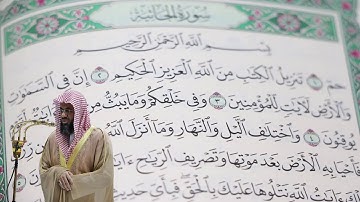 سُورَةُ الجَاثِيَةِ
بِسْمِ اللَّهِ الرَّحْمَٰنِ الرَّحِيمِ
حمٓ ١ تَنزِيلُ ٱلْكِتَٰبِ مِنَ ٱللَّهِ ٱلْعَزِيزِ ٱلْحَكِيمِ ٢ إِنَّ فِى ٱلسَّمَٰوَٰتِ
وَٱلْأَرْضِ لَءَايَٰتٍ لِّلْمُؤْمِنِينَ ٣ وَفِى خَلْقِكُمْ وَمَا يَبُثُّ مِن
يُوقِنُونَ ٤ وَٱخْتِلَٰفِ ٱلَّيْلِ وَٱلنَّهَارِ وَمَآ أَنزَلَ ٱللَّهُ
بِهِ ٱلْأَرْضَ بَعْدَ مَوْتِهَا وَتَصْرِيفِ ٱلرِّيَٰحِ
ٱللَّهِ نَتْلُوهَا عَلَيْكَ بِٱلْحَقِّ فَبِأَىِّ حَدِيثٍ